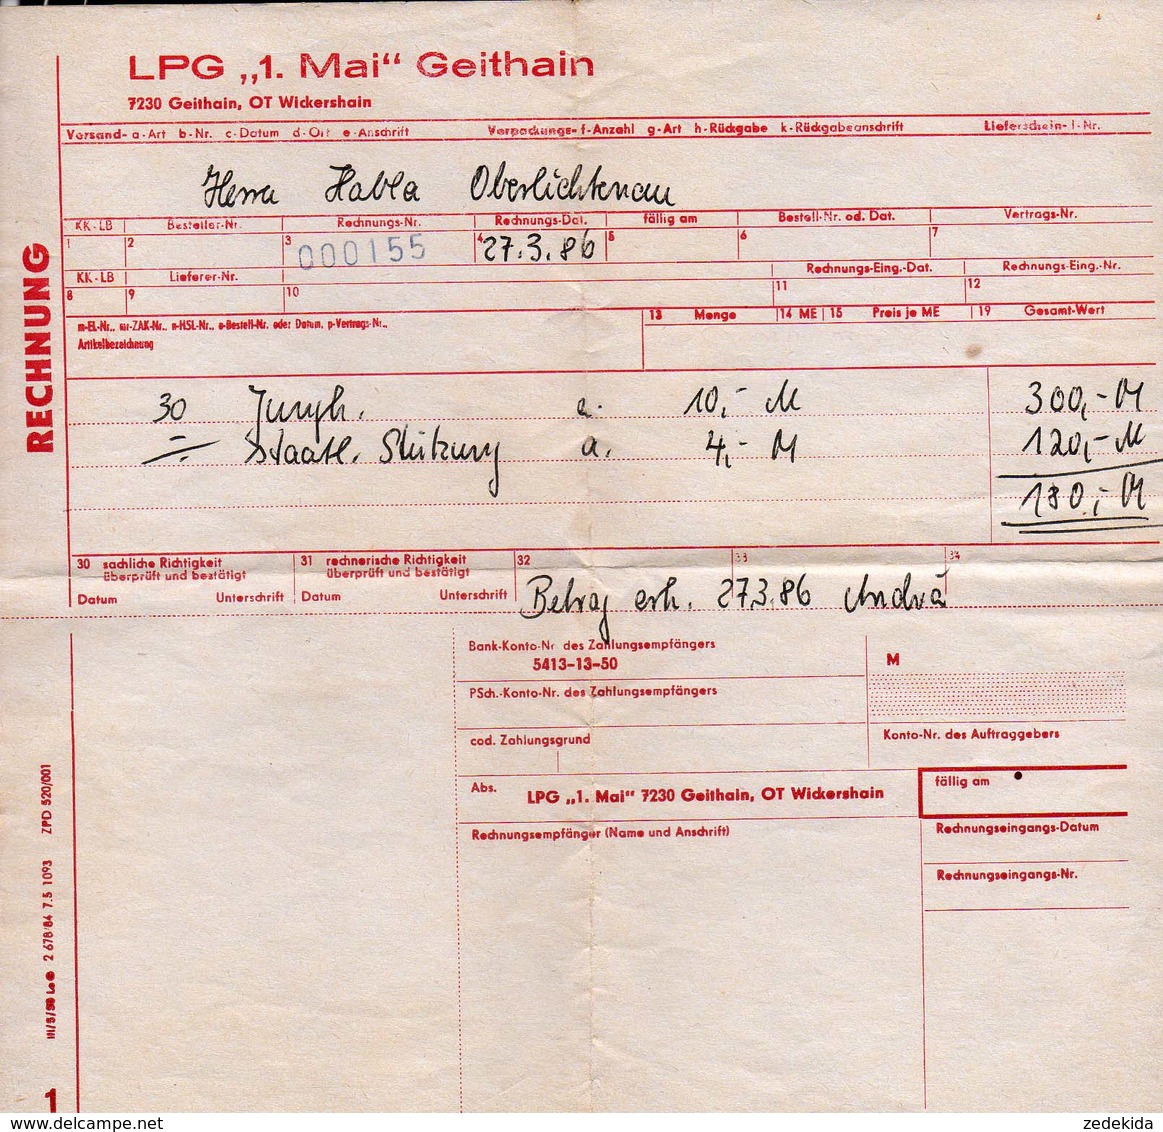 LPG „1. Mai“ Geithain
7230 Geithain, OT Wickershain
Versand- a-Art b-Nr. c-Datum d-Ort e-Anschrift Verpackungs- f-Anzahl g-Art h-Rückgabe k-Rückgabeanschrift Lieferschein- l-Nr.
Herrn Habla Oberlichtenau
KK-LB Besteller-Nr. Rechnungs-Nr. Rechnungs-Dat. fällig am Bestell-Nr. od. Dat. Vertrags-Nr.
1 2 3 000155 4 27.3.86 5 6 7
KK-LB Lieferer-Nr. Rechnungs-Eing.-Dat. Rechnungs-Eing.-Nr.
8 9 10 11 12
m-EL-Nr., nr-ZAK-Nr., n-HSL-Nr., o-Bestell-Nr. oder Datum, p-Vertrags-Nr.,
Artikelbezeichnung
13 Menge 14 ME 15 Preis je ME 19 Gesamt-Wert
RECHNUNG
30 Jungh. a. 10,- M 300,- M
staatl. Stützung a. 4,- M 120,- M
180,- M
30 sachliche Richtigkeit
überprüft und bestätigt
Datum Unterschrift
31 rechnerische Richtigkeit
überprüft und bestätigt
Datum Unterschrift
32 33 34
Betrag erh. 27.3.86 Andrä
Bank-Konto-Nr des Zahlungsempfängers
5413-13-50
M
PSch.-Konto-Nr. des Zahlungsempfängers
cod. Zahlungsgrund
Konto-Nr. des Auftraggebers
Abs.
LPG „1. Mai“ 7230 Geithain, OT Wickershain
fällig am
Rechnungsempfänger (Name und Anschrift)
Rechnungseingangs-Datum
Rechnungseingangs-Nr.
III/5/58 Le 2 678/84 7.5 1093 ZPD 520/001
1
www.delcampe.net
zedekida